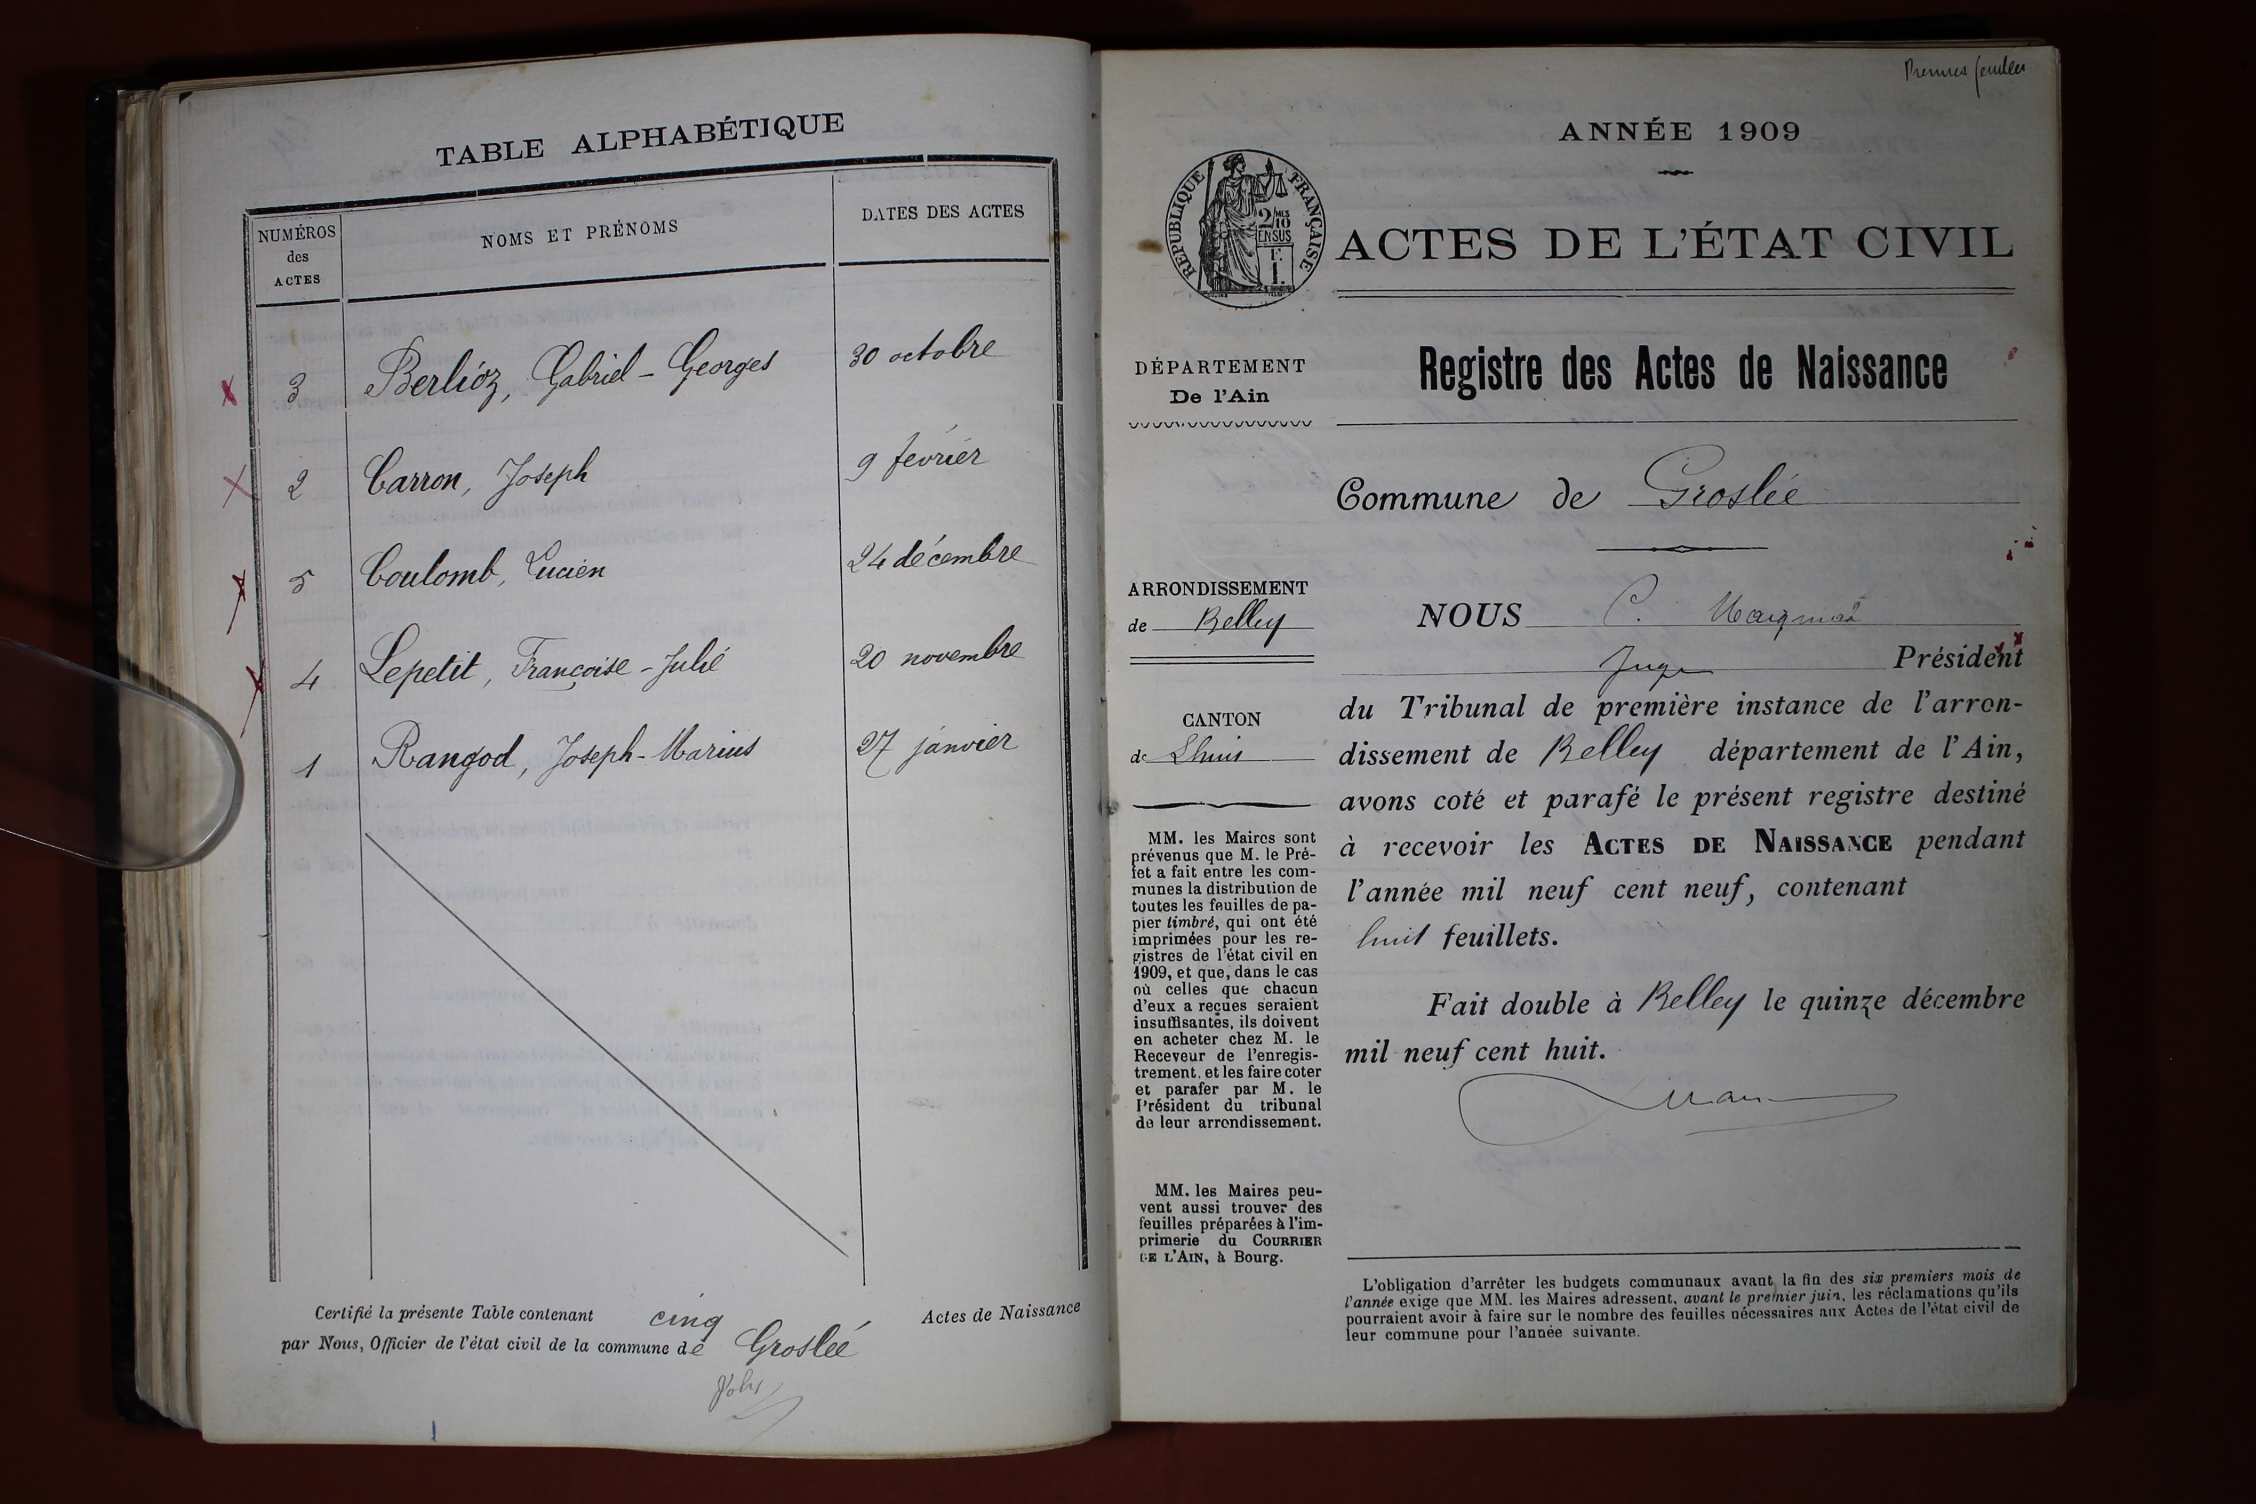 TABLE ALPHABÉTIQUE
NUMÉROS
des
ACTES
NOMS ET PRÉNOMS
DATES DES ACTES
3 Berlioz, Gabriel-Georges 30 octobre
2 Carron, Joseph 9 février
5 Coulomb, Lucien 24 décembre
4 Lepetit, Françoise-Julie 20 novembre
1 Rangod, Joseph-Marius 27 janvier
Certifié la présente Table contenant cinq Actes de Naissance
par Nous, Officier de l'état civil de la commune de Groslée
Premier feuillet
ANNÉE 1909
RÉPUBLIQUE FRANÇAISE
2/10 MES
EN SUS
F.
1.
ACTES DE L'ÉTAT CIVIL
DÉPARTEMENT
De l'Ain
Registre des Actes de Naissance
Commune de Groslée
ARRONDISSEMENT
de Belley
CANTON
de Lhuis
MM. les Maires sont
prévenus que M. le Pré-
fet a fait entre les com-
munes la distribution de
toutes les feuilles de pa-
pier timbré, qui ont été
imprimées pour les re-
gistres de l'état civil en
1909, et que, dans le cas
où celles que chacun
d'eux a reçues seraient
insuffisantes, ils doivent
en acheter chez M. le
Receveur de l'enregis-
trement, et les faire coter
et parafer par M. le
Président du tribunal
de leur arrondissement.
MM. les Maires peu-
vent aussi trouver des
feuilles préparées à l'im-
primerie du COURRIER
DE L'AIN, à Bourg.
NOUS C.
Juge Président
du Tribunal de première instance de l'arron-
dissement de Belley département de l'Ain,
avons coté et parafé le présent registre destiné
à recevoir les ACTES DE NAISSANCE pendant
l'année mil neuf cent neuf, contenant
huit feuillets.
Fait double à Belley le quinze décembre
mil neuf cent huit.
L'obligation d'arrêter les budgets communaux avant la fin des six premiers mois de
l'année exige que MM. les Maires adressent, avant le premier juin, les réclamations qu'ils
pourraient avoir à faire sur le nombre des feuilles nécessaires aux Actes de l'état civil de
leur commune pour l'année suivante.